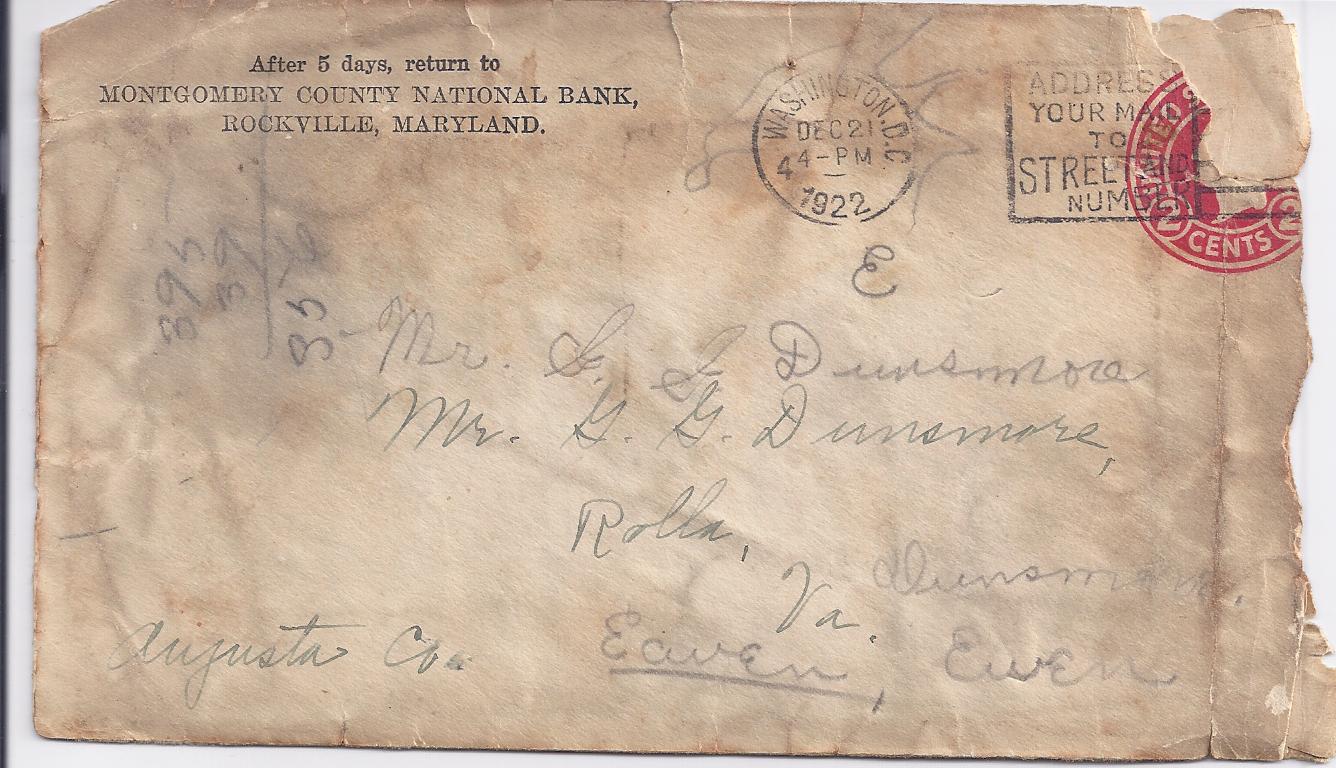 After 5 days, return to
MONTGOMERY COUNTY NATIONAL BANK,
ROCKVILLE, MARYLAND.
WASHINGTON, D.C.
DEC 21
4 4-PM
1922
ADDRESS
YOUR MAIL
TO
STREET AND
NUMBER
UNITED S
2 CENTS 2
395
39
356
E
Mr. G. G. Dunsmore
Mr. G. G. Dunsmore,
Rolla,
Va.
Dunsmore.
Augusta Co.
Eawen, Ewen